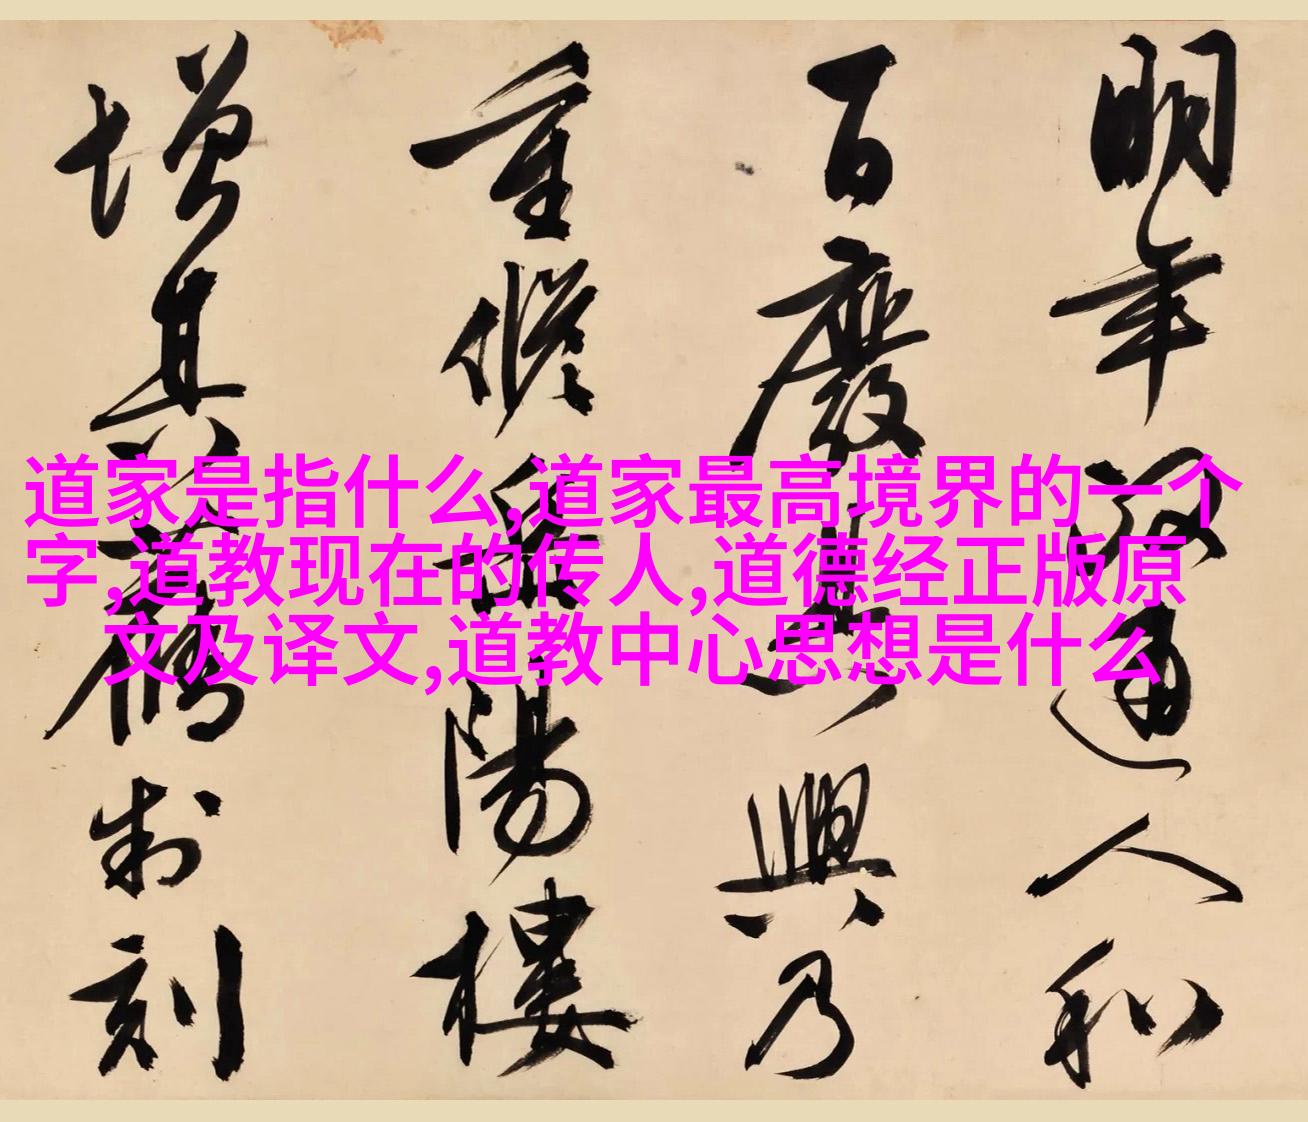 明年政通人和
百廢具興乃
重脩岳陽樓
增其舊制刻
道家是指什么,道家最高境界的一个
字,道教现在的传人,道德经正版原
文及译文,道教中心思想是什么